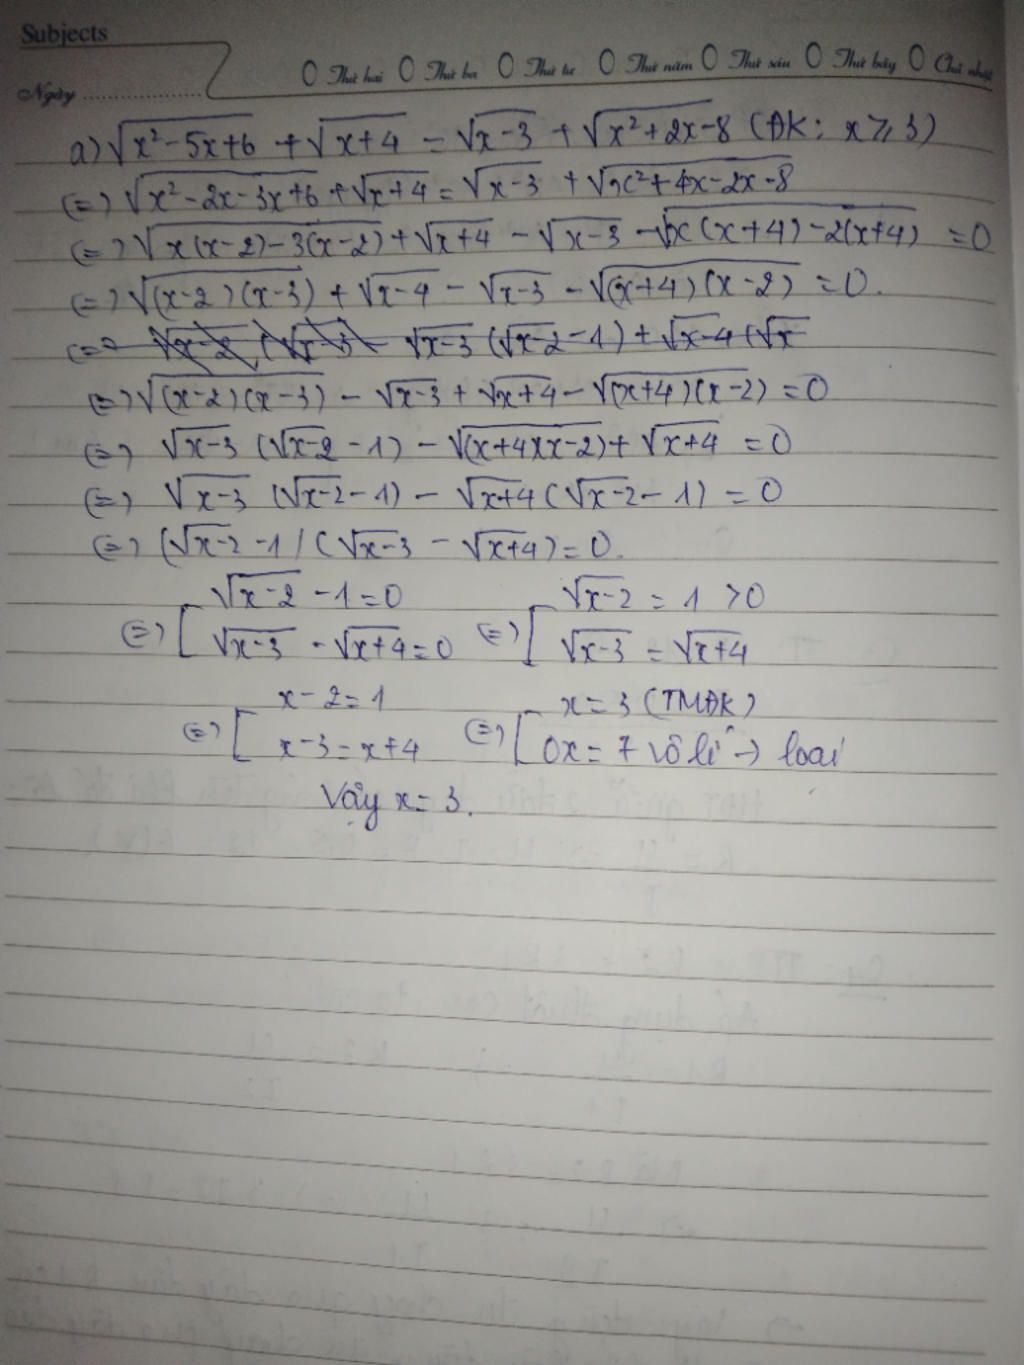 Subjects
Ngày ....................
O Thứ hai O Thứ ba O Thứ tư O Thứ năm O Thứ sáu O Thứ bảy O Chủ nhật
a) √(x²-5x+6) + √(x+4) = √(x-3) + √(x²+2x-8) (ĐK: x ≥ 3)
(=) √(x²-2x-3x+6) + √(x+4) = √(x-3) + √(x²+4x-2x-8)
(=) √(x(x-2)-3(x-2)) + √(x+4) - √(x-3) - √(x(x+4)-2(x+4)) = 0
(=) √((x-2)(x-3)) + √(x-4) - √(x-3) - √((x+4)(x-2)) = 0.
(=) √(x-3) (√(x-2) - 1) + √(x-4) (√x
(=) √((x-2)(x-3)) - √(x-3) + √(x+4) - √((x+4)(x-2)) = 0
(=) √(x-3) (√(x-2) - 1) - √((x+4)(x-2)) + √(x+4) = 0
(=) √(x-3) (√(x-2) - 1) - √(x+4) (√(x-2) - 1) = 0
(=) (√(x-2) - 1) (√(x-3) - √(x+4)) = 0.
(=) [ √(x-2) - 1 = 0
√(x-3) - √(x+4) = 0
(=) [ √(x-2) = 1 > 0
√(x-3) = √(x+4)
(=) [ x - 2 = 1
x - 3 = x + 4
(=) [ x = 3 (TMĐK)
0x = 7 vô lí → loại
Vậy x = 3.